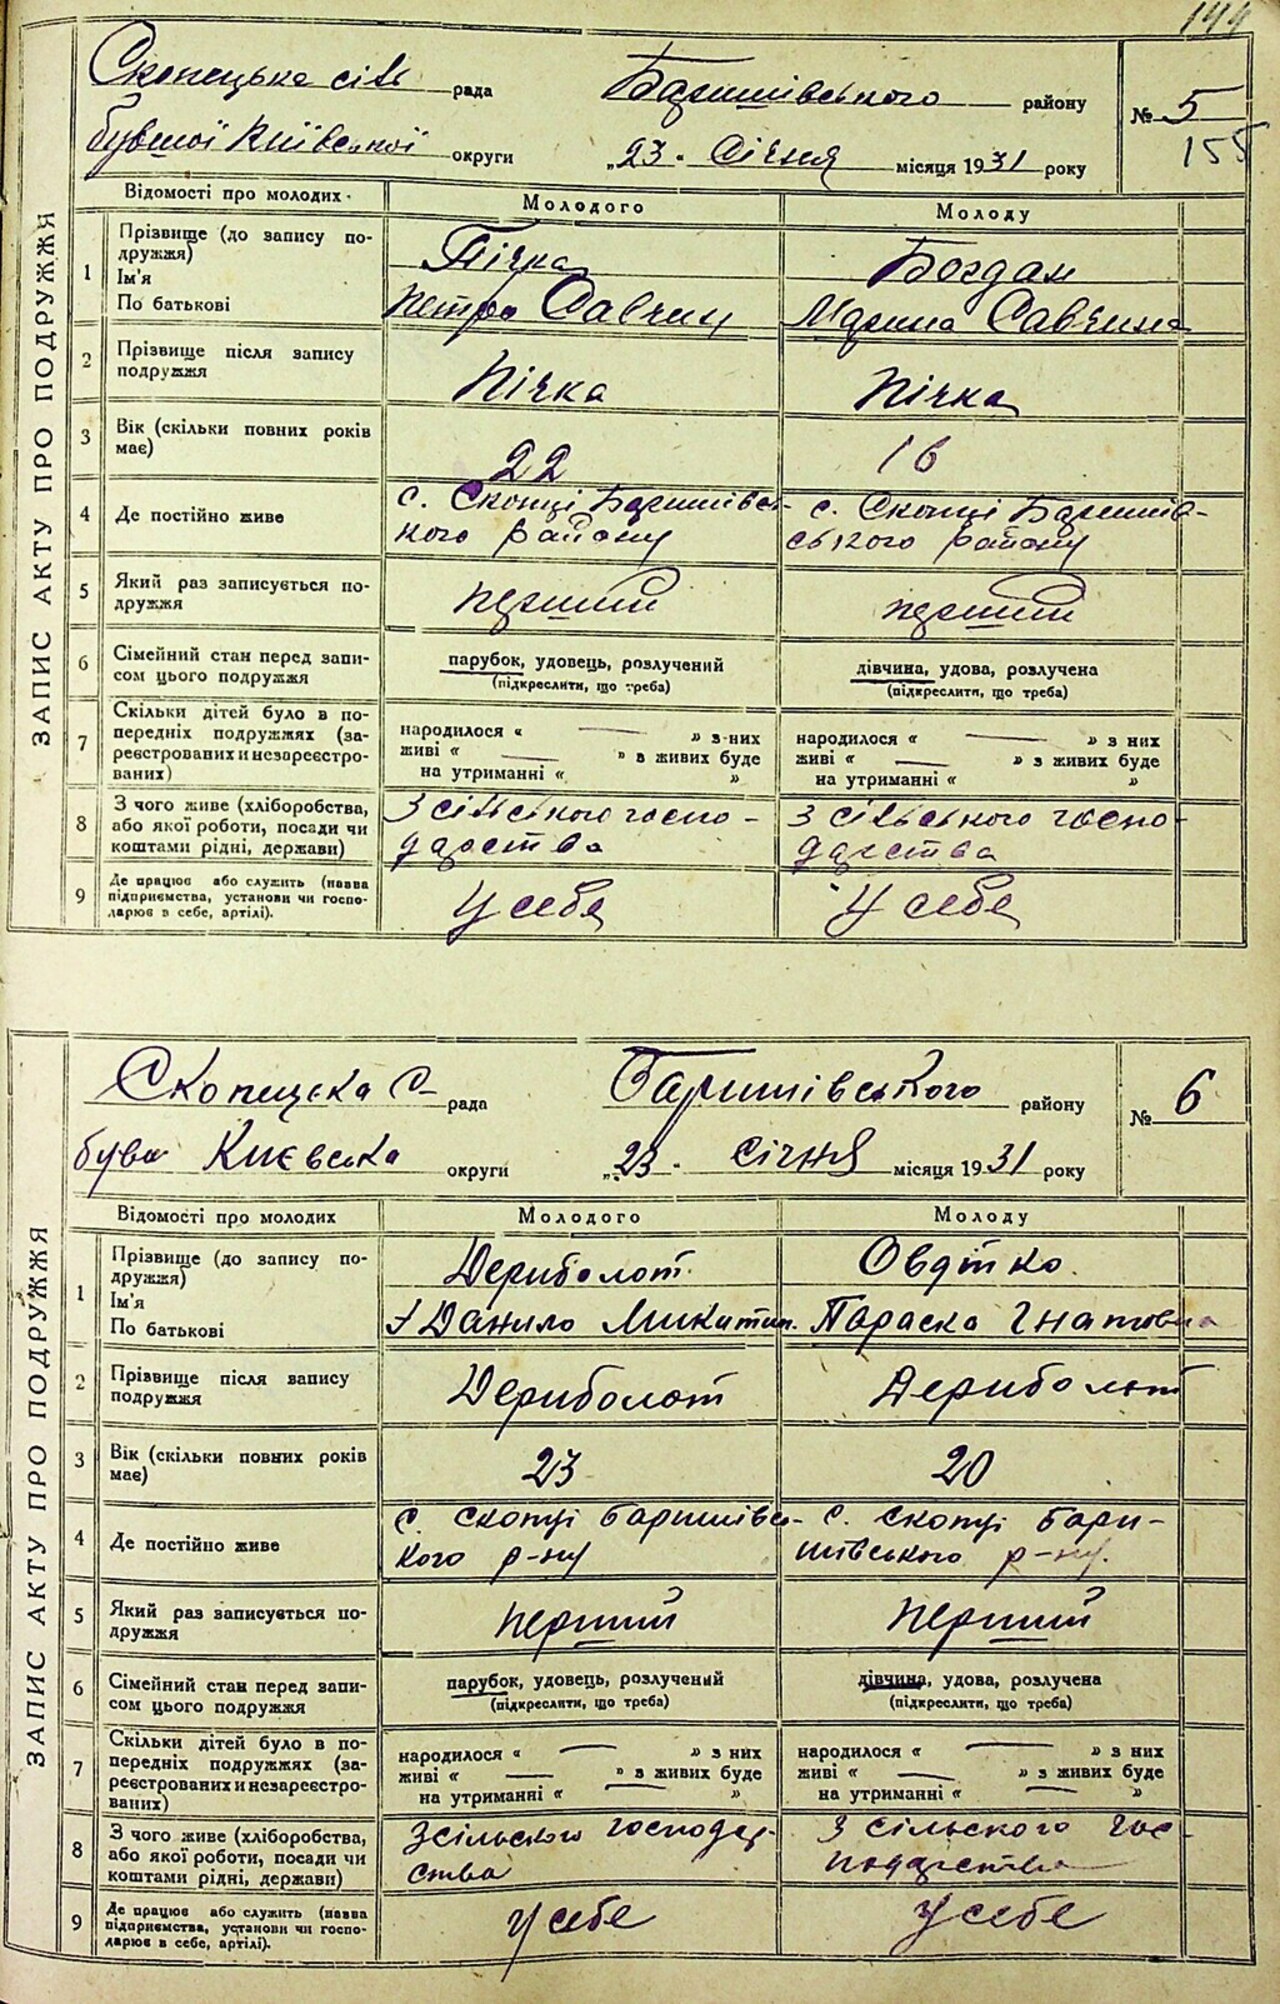 144
ЗАПИС АКТУ ПРО ПОДРУЖЖЯ
Скопецька сіль рада Баришівського району № 5
бувшої Київської округи „23" Січня місяця 1931 року 155
Відомості про молодих Молодого Молоду
1 Прізвище (до запису подружжя) Ім'я По батькові
Пічка
Петро Савчин
Богдан
Марина Савчина
2 Прізвище після запису подружжя Пічка Пічка
3 Вік (скільки повних років має) 22 16
4 Де постійно живе
с. Скопці Баришівсь-
кого району
с. Скопці Баришів-
ського району
5 Який раз записується подружжя перший перший
6 Сімейний стан перед записом цього подружжя
парубок, удовець, розлучений
(підкреслити, що треба)
дівчина, удова, розлучена
(підкреслити, що треба)
7 Скільки дітей було в попередніх подружжях (зареєстрованих и незареєстрованих)
народилося « — » з них
живі « — » з живих буде
на утриманні « »
народилося « — » з них
живі « — » з живих буде
на утриманні « »
8 З чого живе (хліборобства, або якої роботи, посади чи коштами рідні, держави)
З сільського госпо-
дарства
З сільського госпо-
дарства
9 Де працює або служить (назва підприємства, установи чи господарює в себе, артілі).
У себе
У себе
ЗАПИС АКТУ ПРО ПОДРУЖЖЯ
Скопецька С- рада Баришівського району № 6
був. Києвська округи „23" січня місяця 1931 року
Відомості про молодих Молодого Молоду
1 Прізвище (до запису подружжя) Ім'я По батькові
Дериболот.
Данило Микитин.
Овдіко.
Параска Гнатовна
2 Прізвище після запису подружжя Дериболот Дериболот
3 Вік (скільки повних років має) 23 20
4 Де постійно живе
с. Скопці Баришівсь-
кого р-ну
с. Скопці Бари-
шівського р-ну.
5 Який раз записується подружжя перший перший
6 Сімейний стан перед записом цього подружжя
парубок, удовець, розлучений
(підкреслити, що треба)
дівчина, удова, розлучена
(підкреслити, що треба)
7 Скільки дітей було в попередніх подружжях (зареєстрованих и незареєстрованих)
народилося « — » з них
живі « — » з живих буде
на утриманні « — »
народилося « — » з них
живі « — » з живих буде
на утриманні « — »
8 З чого живе (хліборобства, або якої роботи, посади чи коштами рідні, держави)
З сільского господар-
ства
З сільского гос-
подарства
9 Де працює або служить (назва підприємства, установи чи господарює в себе, артілі).
У себе
У себе